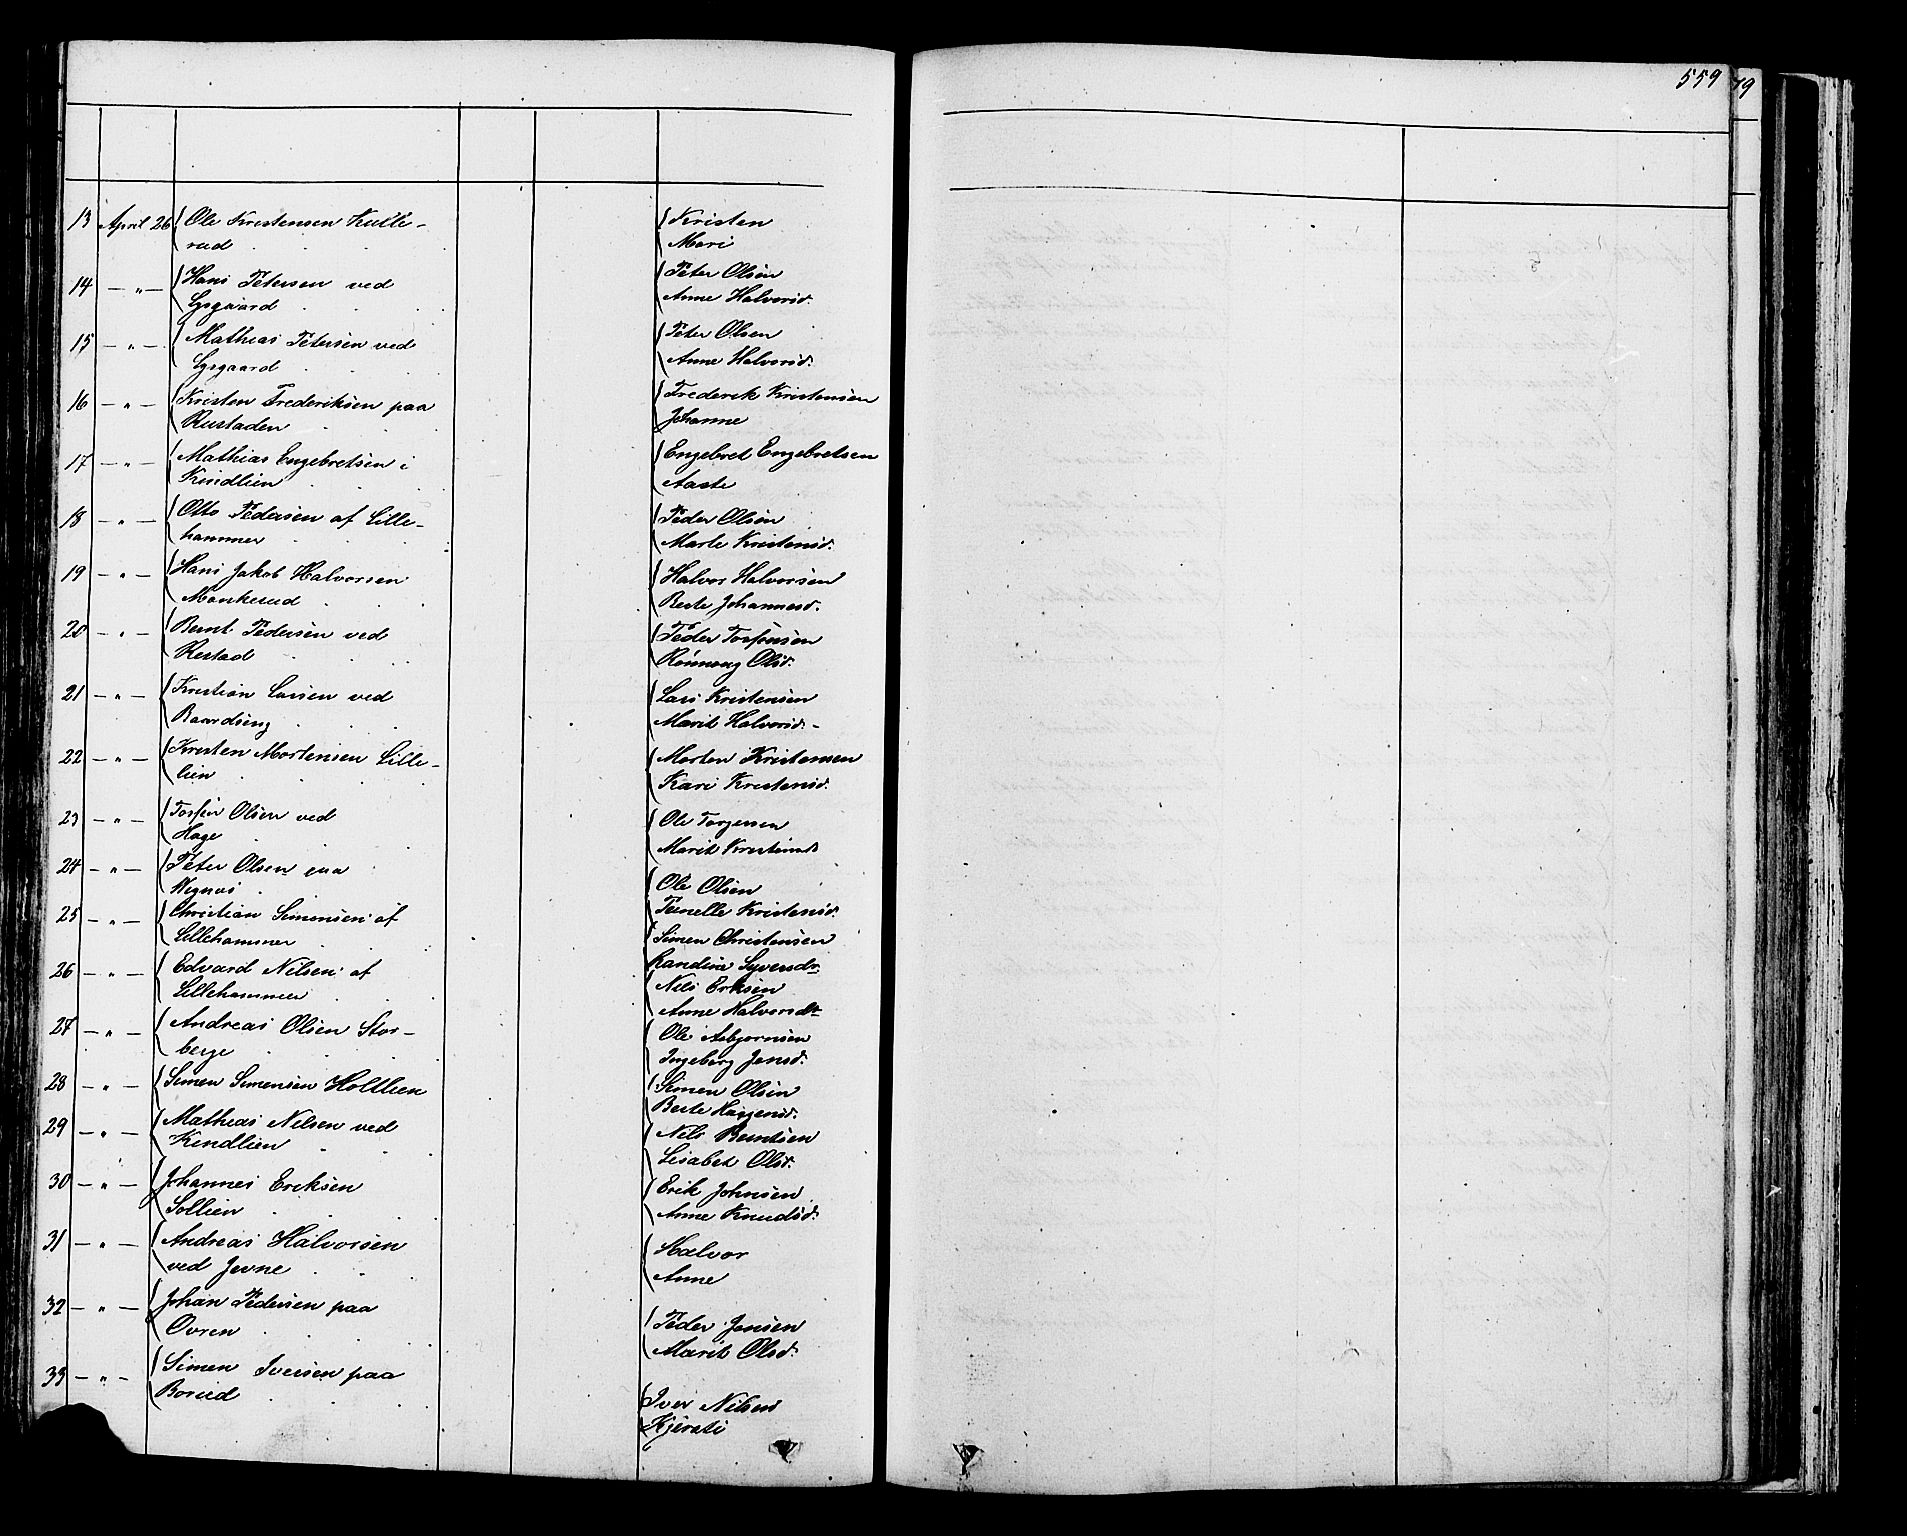 559
19
13 April 26 Ole Kristensen Kulle-
rud
Kristen
Mari
14 — " — Hans Petersen ved
Lysgaard
Peter Olsen
Anne Halvorsd.
15 — " — Mathias Petersen ved
Lysgaard
Peter Olsen
Anne Halvorsd.
16 — " — Kristen Frederiksen paa
Rustaden
Frederik Kristensen
Johanne
17 — " — Mathias Engebretsen i
Kindlien
Engebret Engebretsen
Aaste
18 — " — Otto Pedersen af Lille-
hammer
Peder Olsen
Marte Kristensd.
19 — " — Hans Jakob Halvorsen
Monkerud
Halvor Halvorsen
Berte Johannesd.
20 — " — Bernt Pedersen ved
Restad
Peder Torfinsen
Rønnoug Olsd.
21 — " — Kristian Larsen ved
Baardseng
Lars Kristensen
Marit Halvorsd.
22 — " — Kristen Mortensen Lille-
lien
Morten Kristensen
Kari Kristensd.
23 — " — Torfin Olsen ved
Hage
Ole Torgersen
Marit Kristensd
24 — " — Peter Olsen paa
Ole Olsen
Pernelle Kristensd.
25 — " — Christian Simensen af
Lillehammer
Simen Christensen
Randine Syversdr
26 — " — Edvard Nilsen af
Lillehammer
Nils Eriksen
Anne Halvorsdtr
27 — " — Andreas Olsen Stor-
berge
Ole Asbjørnsen
Ingeborg Jensd.
28 — " — Simen Simensen Holtlien
Simen Olsen
Berte Haagensd.
29 — " — Mathias Nilsen ved
Kindlien
Nils Berntsen
Lisabet Olsd.
30 — " — Johannes Eriksen
Sollien
Erik Johnsen
Anne Knudsd.
31 — " — Andreas Halvorsen
ved Jevne
Halvor
Anne
32 — " — Johan Pedersen paa
Ovren
Peder Jensen
Marit Olsd.
33 — " — Simen Iversen paa
Borud
Iver Nilsen
Kjersti